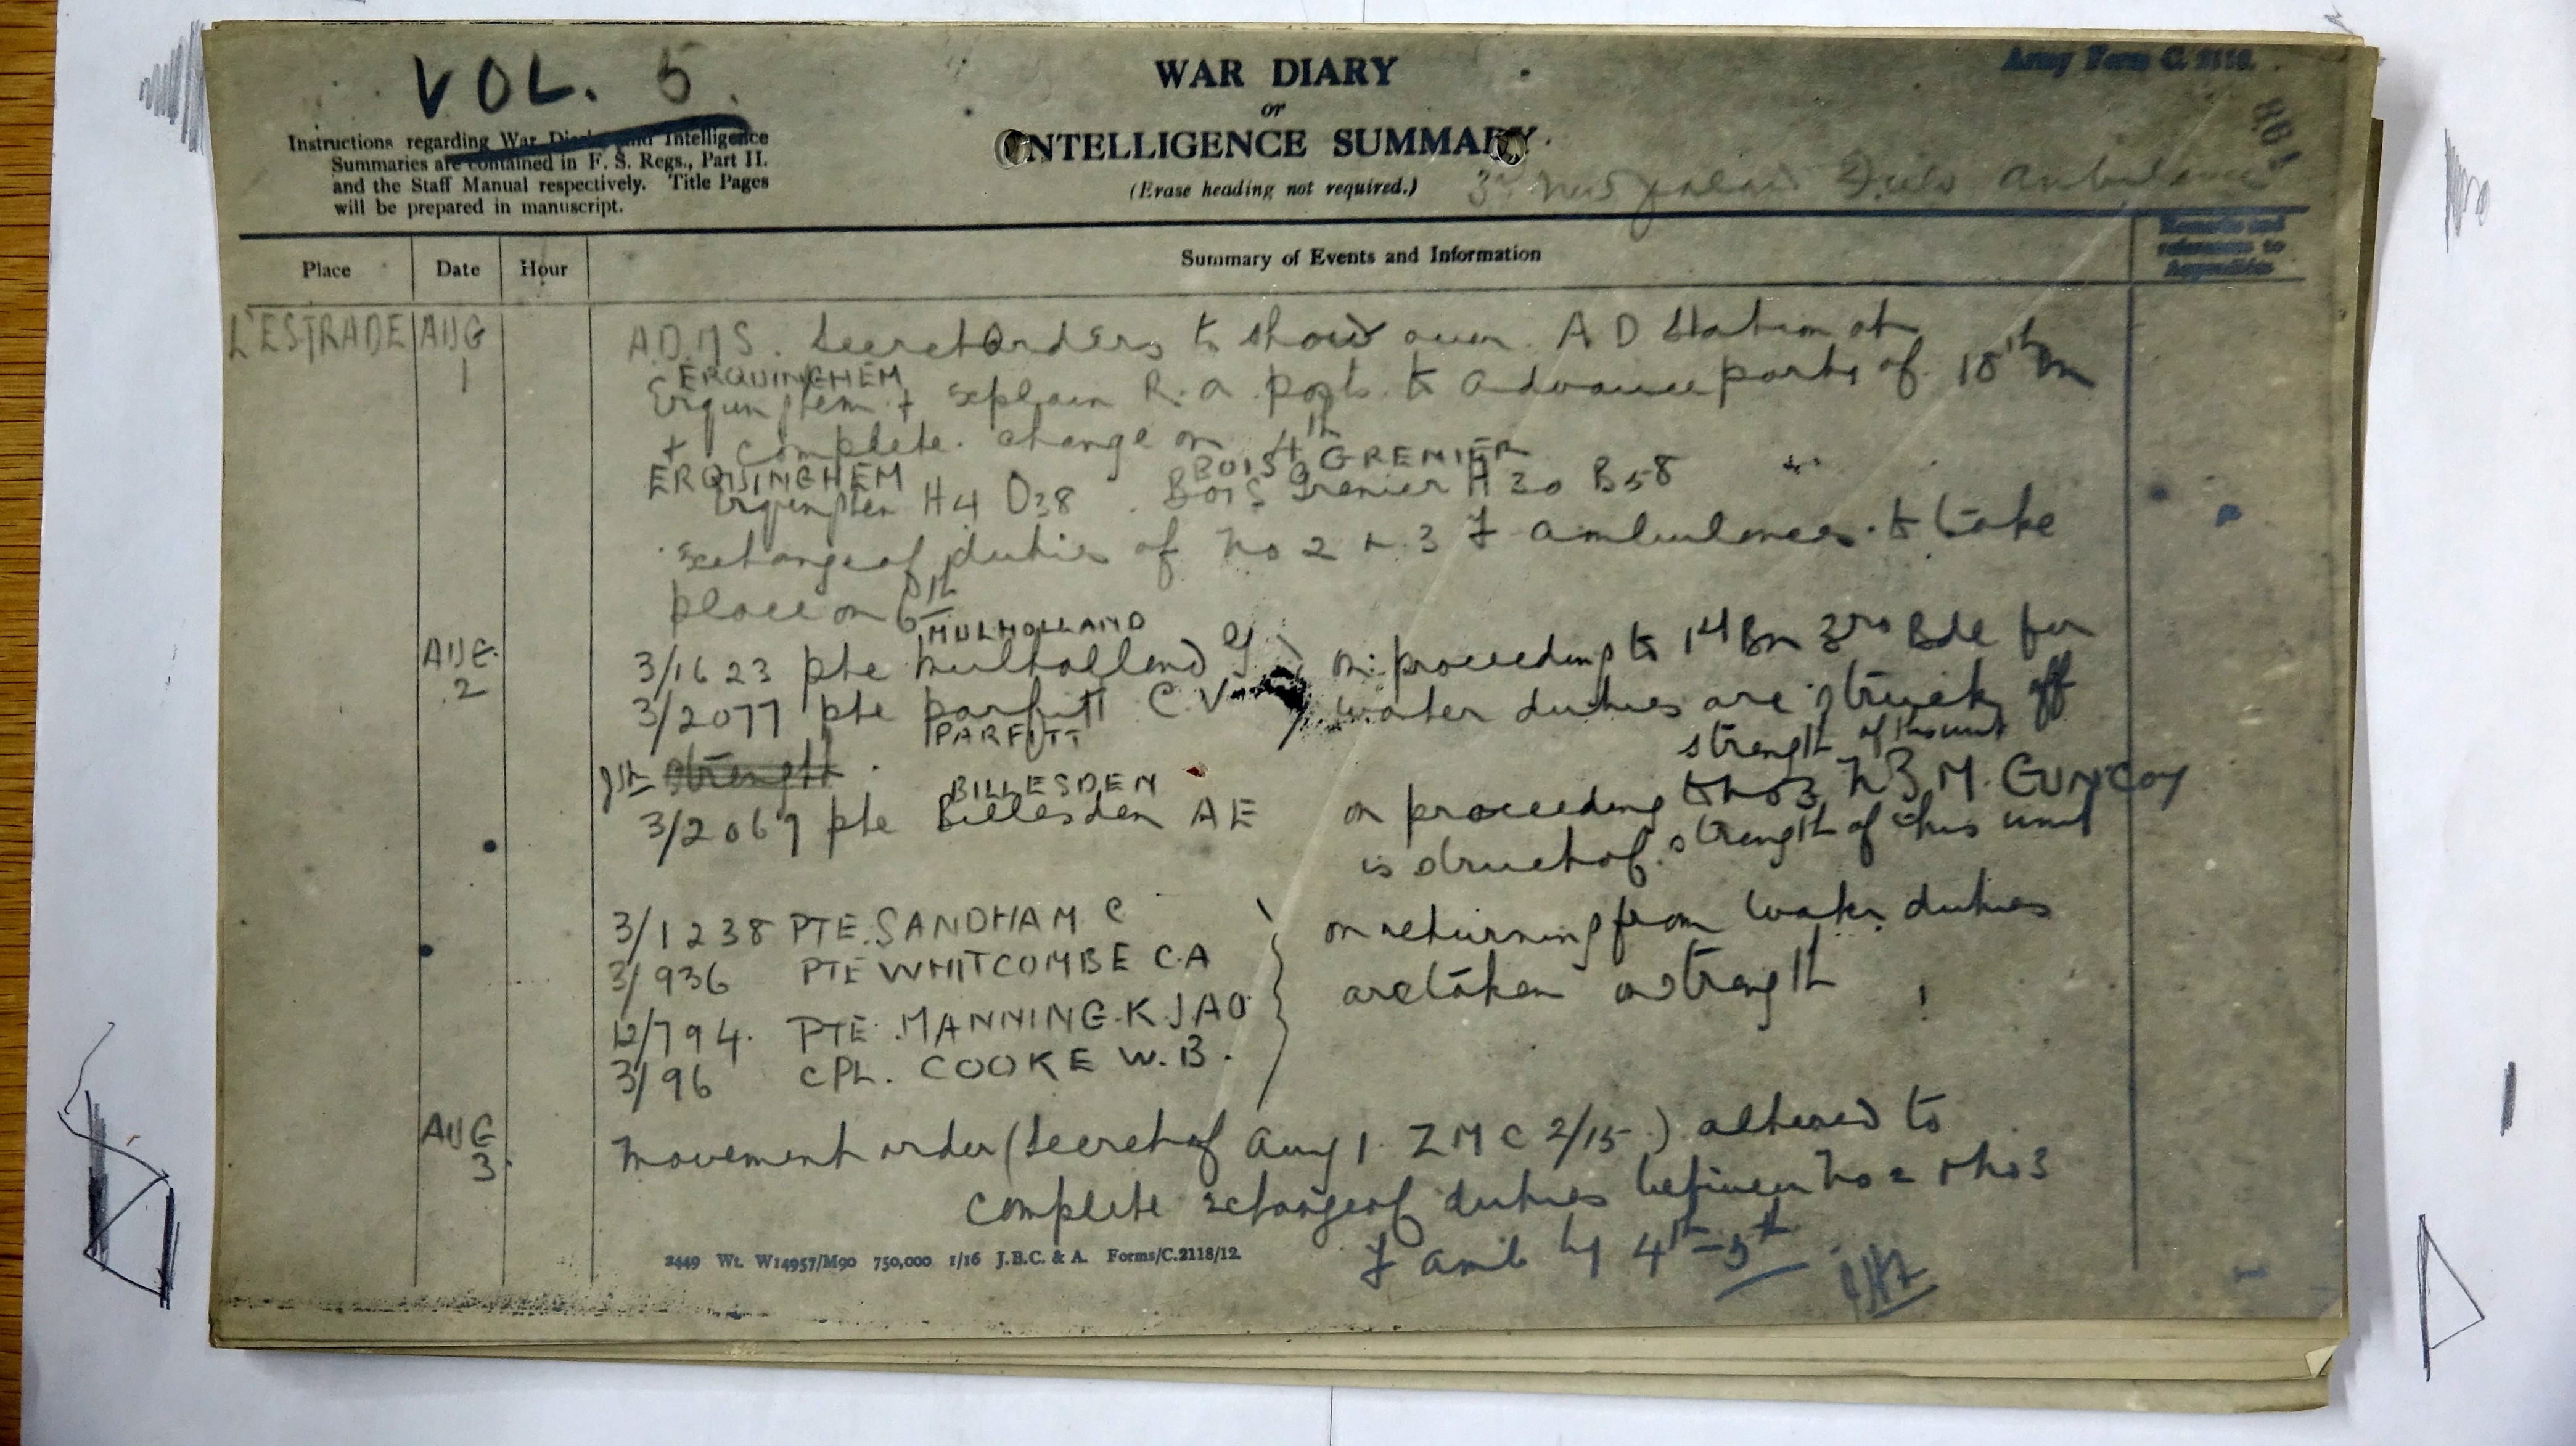 VOL. 5.
Army Form C. 2118.
WAR DIARY
or
INTELLIGENCE SUMMARY.
(Erase heading not required.)
Instructions regarding War Diary and Intelligence
Summaries are contained in F. S. Regs., Part II.
and the Staff Manual respectively. Title Pages
will be prepared in manuscript.
3rd New Zealand Field Ambulance
Place Date Hour Summary of Events and Information Remarks and references to Appendices
L'ESTRADE AUG 1 A.D.M.S. Secret Orders to show over A D Station at
ERQUINGHEM
Erquinghem + explain R.A. posts to advance party of 18th
+ complete change on 4th
ERQUINGHEM BOIS GRENIER
Erquinghem H4 D38 . Bois Grenier H 30 B58
Exchange of duties of No 2 & 3 F Ambulances to take
place on 6th
MULHOLLAND
AUG 2 3/1623 pte Mulholland on proceeding to 1st Bn 3rd Bde for
3/2077 pte Parfitt C.V water duties are struck off
PARFITT
strength of this unit
strength
BILLESDEN
3/2069 pte Billesden AE on proceeding to No 3 N Z M. GUN COY
is struck of strength of this unit
3/1238 PTE. SANDHAM C on returning from water duties
3/936 PTE WHITCOMBE C.A are taken on strength
12/794. PTE. MANNING K JAO
3/96 CPL. COOKE W.B.
AUG 3. Movement order (Secret of Aug 1. Z M C 2/15) altered to
complete exchange of duties between No 2 & No 3
F Amb by 4th-5th
2449 Wt. W14957/M90 750,000 1/16 J.B.C. & A. Forms/C.2118/12.